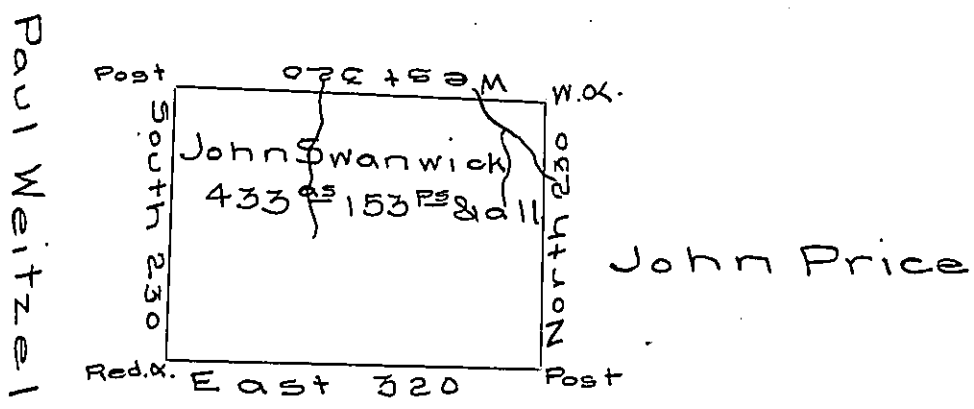 Paul Weitzel
Post
West 320
W.O.
South 230
John Swanwick
433 as 153 ps & all
North 230
John Price
Red.O.
East 320
Post